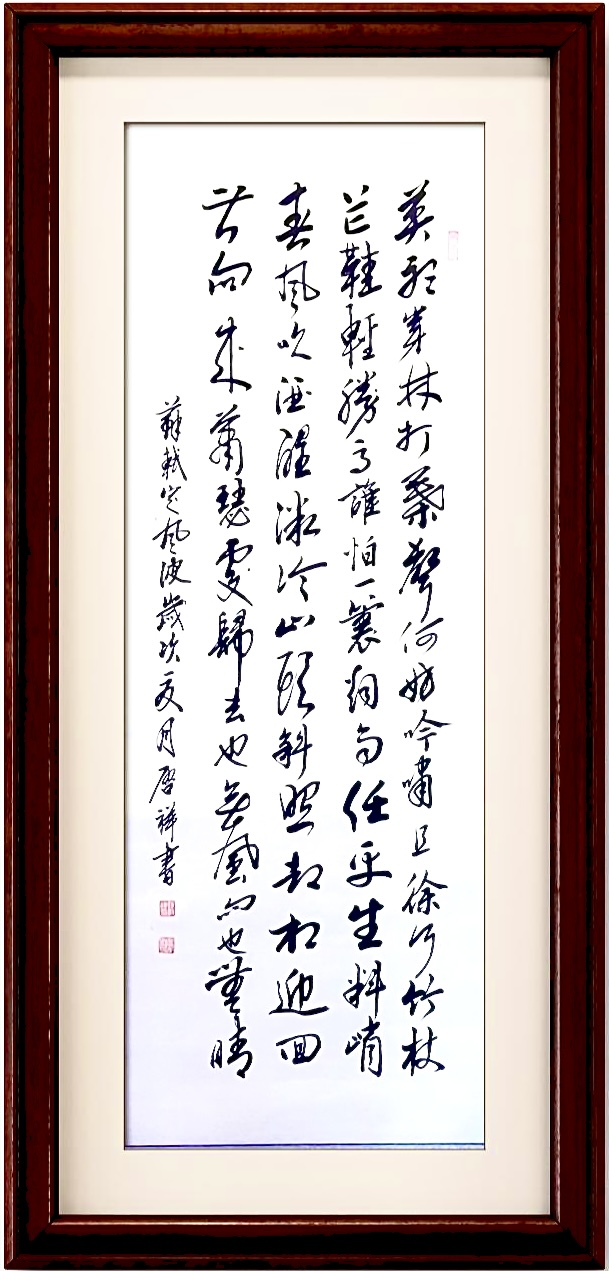 莫聽穿林打葉聲何妨吟嘯且徐行竹杖
芒鞋輕勝馬誰怕一蓑烟雨任平生料峭
春風吹酒醒微冷山頭斜照却相迎回
首向來蕭瑟處歸去也無風雨也無晴
蘇軾定風波歲次夏月启祥書